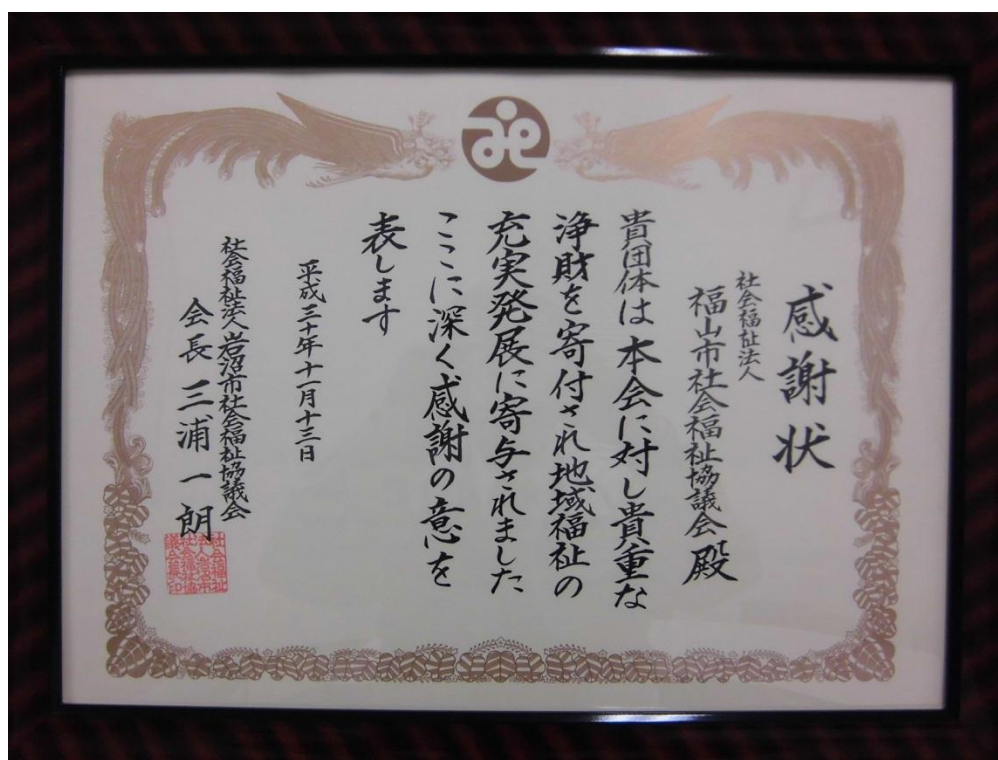 感謝状
社会福祉法人
福山市社会福祉協議会殿
貴団体は本会に対し貴重な
浄財を寄付され地域福祉の
充実発展に寄与されました
ここに深く感謝の意を
表します
平成三十年十一月十三日
社会福祉法人岩沼市社会福祉協議会
会長三浦一朗